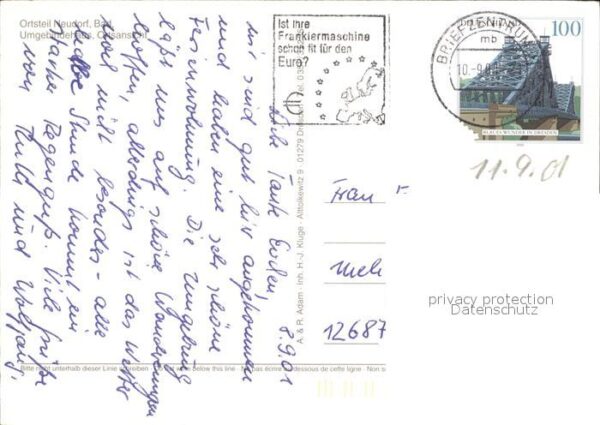 Ortsteil Neudorf, Bad
Umgebindehaus, Ortsansicht
Ist Ihre
Frankiermaschine
schon fit für den
Euro?
BRIEFZENTRUM
mb
10.-9.
100
BLAUES WUNDER IN DRESDEN
11.9.01
8.9.01
Liebe Tante
wir sind gut hier angekommen
und haben eine sehr schöne
Ferienwohnung. Die Umgebung
läßt uns auf schöne Wanderungen
hoffen, allerdings ist das Wetter
nicht besonders - alle
Stunde kommt ein
Regenguß. Viele Grüße
von und Wolfgang.
A. & R. Adam - Inh. H.-J. Kluge - Alttolkewitz 9 - 01279 Dresden Tel. 03
Frau
12687
privacy protection
Datenschutz
Bitte nicht unterhalb dieser Linie schreiben Do not write below this line - Ne pas écrire au-dessous de cette ligne Non